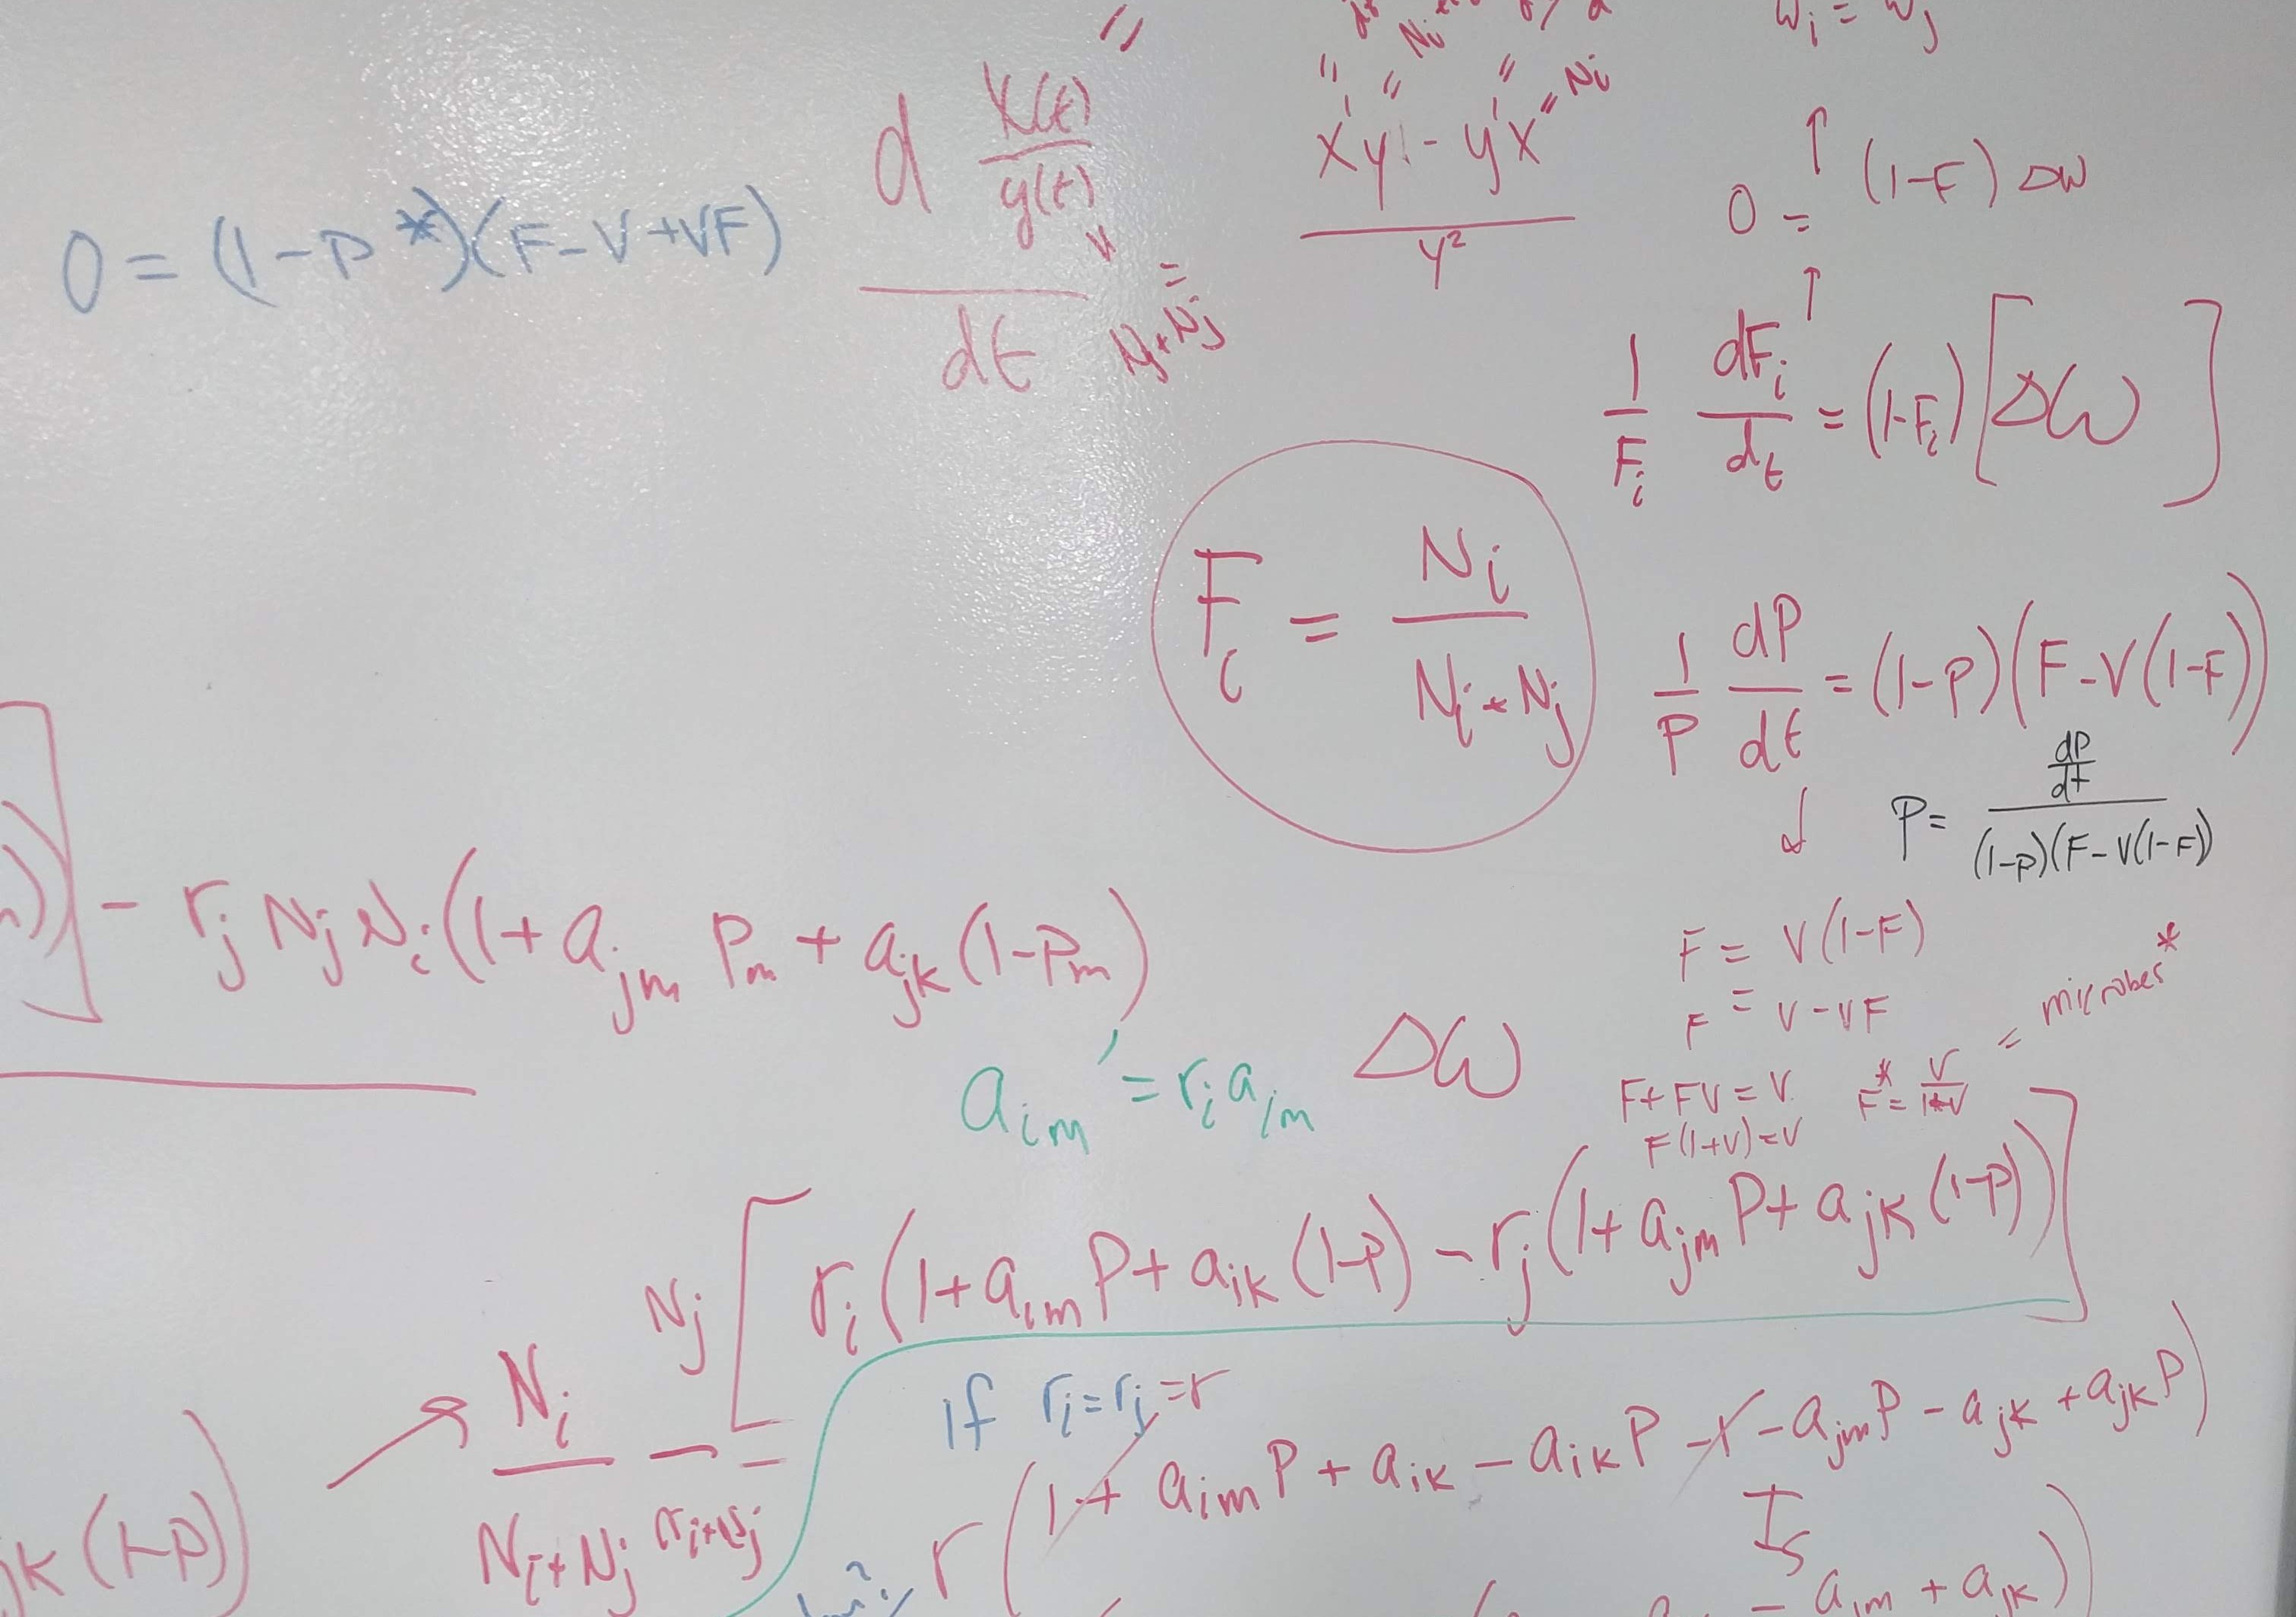 W_i = W_j
N_i
x'y - y'x
y²
0 = (1-F) ΔW
d x(t)/y(t)
dt
N_i + N_j
0 = (1-P*)(F-V+VF)
1/F_i dF_i/dt = (1-F_i)[ΔW]
F_i = N_i / N_i + N_j
1/P dP/dt = (1-P)(F-V(1-F))
P = dP/dt / (1-P)(F-V(1-F))
F = V(1-F)
F = V-VF
F+FV = V
F(1+V) = V
F* = V/1+V = microbes*
- r_j N_j N_i (1 + a_jm P_m + a_jk (1-P_m)
a_im' = r_i a_im
ΔW
N_i / N_i+N_j
N_j / N_i+N_j [ r_i (1 + a_im P + a_ik (1-P) - r_j (1 + a_jm P + a_jk (1-P)) ]
If r_i = r_j = r
r (1 + a_im P + a_ik - a_ik P - 1 - a_jm P - a_jk + a_jk P)
k (1-P))
- a_jm + a_jk))